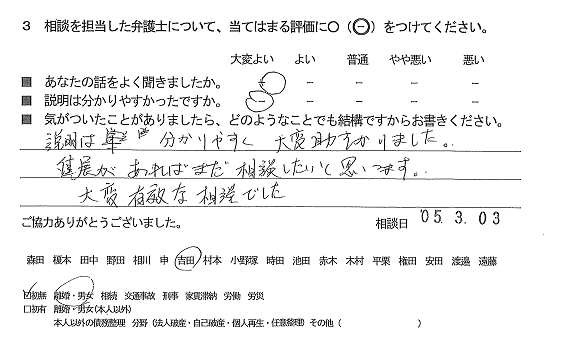 3 相談を担当した弁護士について、当てはまる評価に○(⊖)をつけてください。
大変よい よい 普通 やや悪い 悪い
■ あなたの話をよく聞きましたか。 － － － － －
■ 説明は分かりやすかったですか。 － － － － －
■ 気がついたことがありましたら、どのようなことでも結構ですからお書きください。
説明は 分かりやすく 大変助かりました。
進展が あればまだ 相談したいと思います。
大変 有敵な 相談でした
ご協力ありがとうございました。 相談日 '05. 3. 03
森田 榎本 田中 野田 相川 申 吉田 村本 小野塚 時田 池田 赤木 木村 平栗 権田 安田 渡邉 遠藤
☑初無 離婚・男女 相続 交通事故 刑事 家賃滞納 労働 労災
□初有 離婚・男女(本人以外)
本人以外の債務整理 分野(法人破産・自己破産・個人再生・任意整理) その他( )